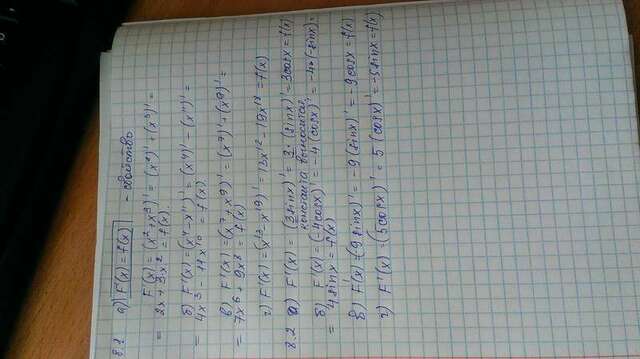 8.1 а) F'(x) = f(x) - свойство
F'(x) = (x² + x³)' = (x²)' + (x³)' =
= 2x + 3x² = f(x).
б) F'(x) = (x⁴ - x¹¹)' = (x⁴)' - (x¹¹)' =
= 4x³ - 11x¹⁰ = f(x)
в) F'(x) = (x⁷ + x⁹)' = (x⁷)' + (x⁹)' =
= 7x⁶ + 9x⁸ = f(x)
г) F'(x) = (x¹³ - x¹⁹)' = 13x¹² - 19x¹⁸ = f(x)
8.2 а) F'(x) = (3sinx)' = 3·(sinx)' = 3cosx = f(x)
константа выносится
б) F'(x) = (-4cosx)' = -4(cosx)' = -4·(-sinx) =
= 4sinx = f(x)
в) F'(x) = (-9sinx)' = -9(sinx)' = -9cosx = f(x)
г) F'(x) = (5cosx)' = 5(cosx)' = -5sinx = f(x)